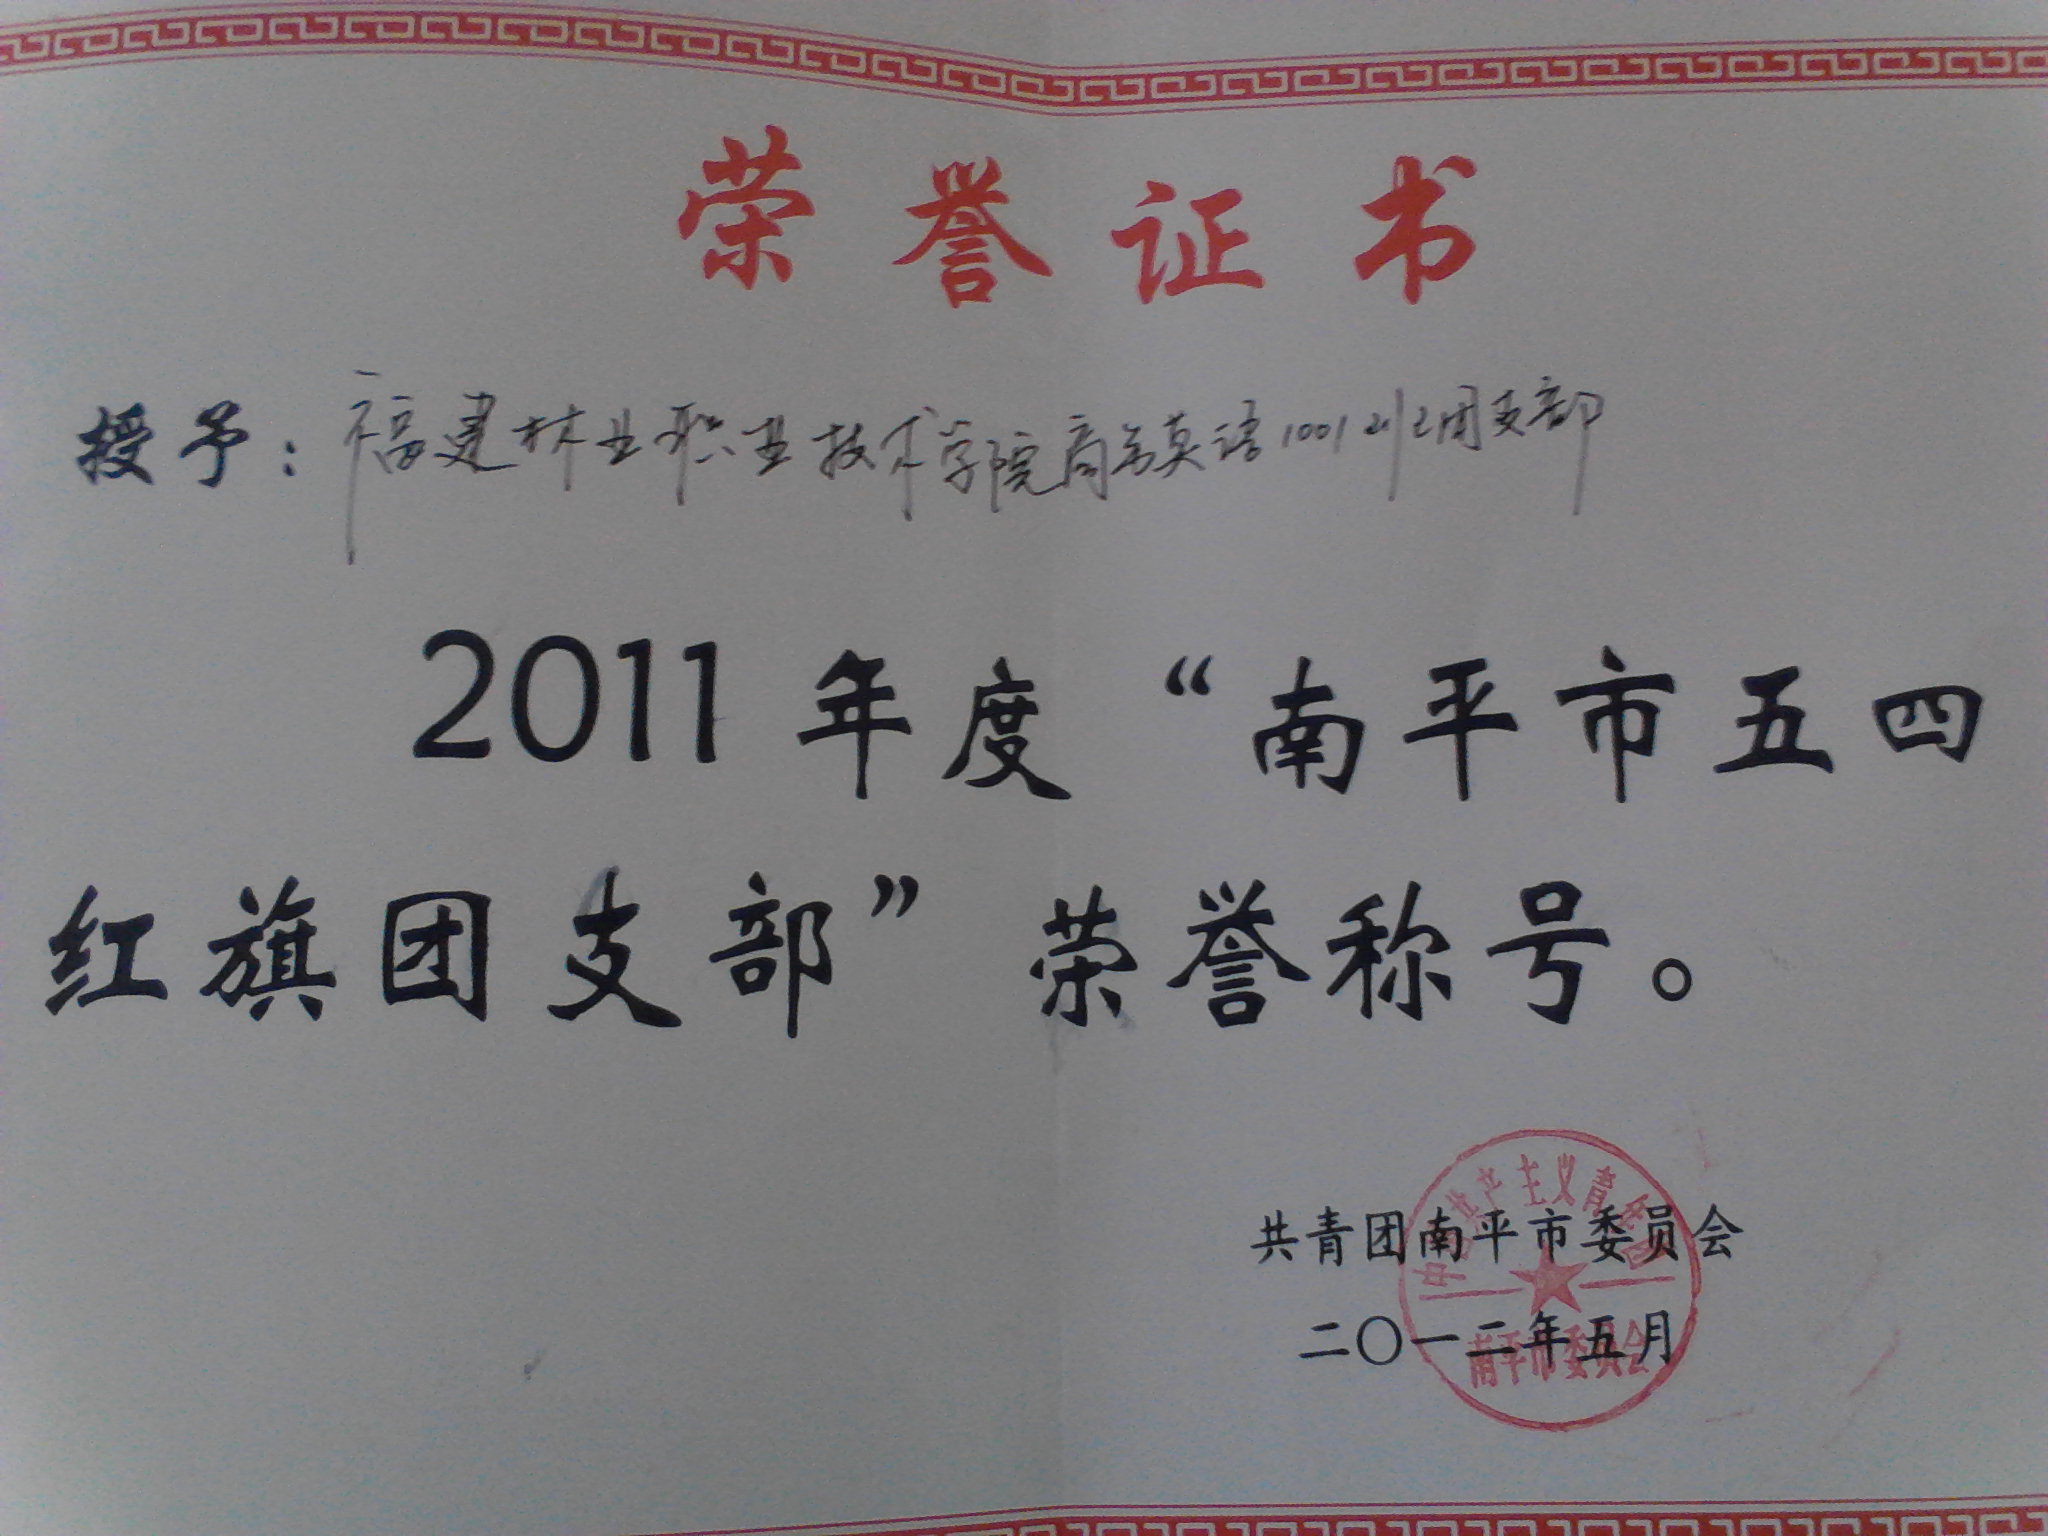 荣誉证书
授予：福建林业职业技术学院商务英语1001班团支部
2011年度“南平市五四
红旗团支部”荣誉称号。
共青团南平市委员会
二〇一二年五月
中国共产主义青年团
南平市委员会